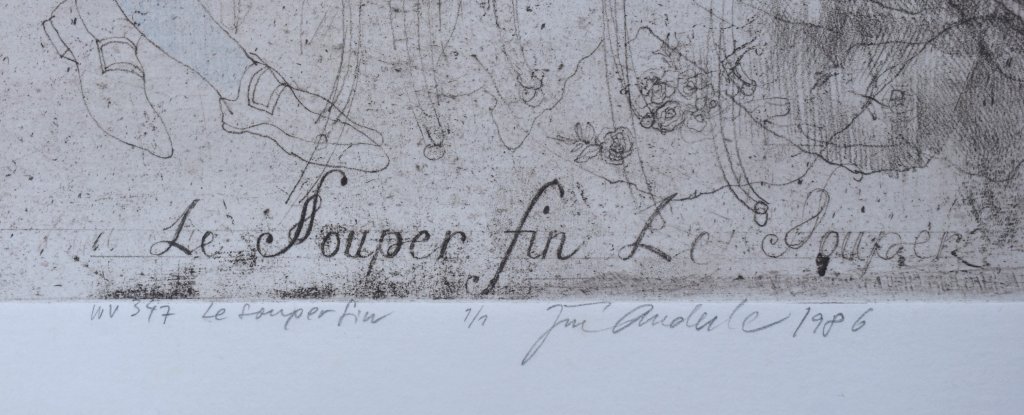 Le Souper fin Le Souper
WV 347 Le souper fin 1/1 Jiří Anderle 1986